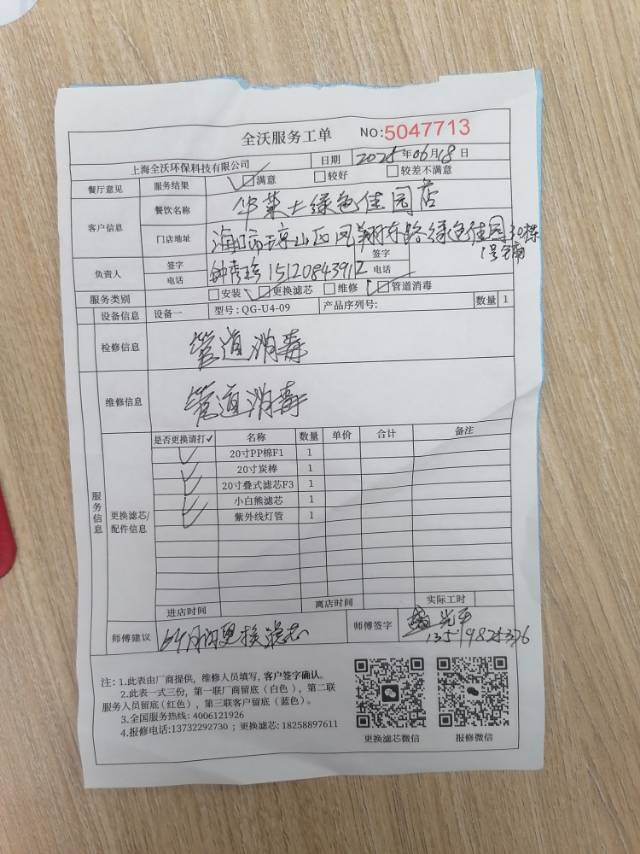 全沃服务工单 NO:5047713
上海全沃环保科技有限公司 日期 2025年06月18日
餐厅意见 服务结果 ☑满意 □较好 □较差不满意
客户信息 餐饮名称 华莱士绿色佳园店
门店地址 海口市琼山区凤翔东路绿色佳园30栋
1号铺
负责人 签字 电话 钟 15120843912 签字 电话
服务类别 □安装 ☑更换滤芯 □维修 ☑管道消毒
设备信息 设备一 型号: QG-U4-09 产品序列号: 数量 1
检修信息 管道消毒
维修信息 管道消毒
服务信息 更换滤芯/配件信息
是否更换请打✓ 名称 数量 单价 合计 备注
✓ 20寸PP棉F1 1
✓ 20寸炭棒 1
✓ 20寸叠式滤芯F3 1
✓ 小白熊滤芯 1
✓ 紫外线灯管 1
进店时间 离店时间 实际工时
师傅建议 6个月内更换滤芯 师傅签字
注: 1.此表由厂商提供, 维修人员填写, 客户签字确认。
2.此表一式三份, 第一联厂商留底 (白色) , 第二联
服务人员留底(红色) , 第三联客户留底 (蓝色) 。
3.全国服务热线: 4006121926
4.报修电话:13732292730 ; 更换滤芯: 18258897611
更换滤芯微信 报修微信